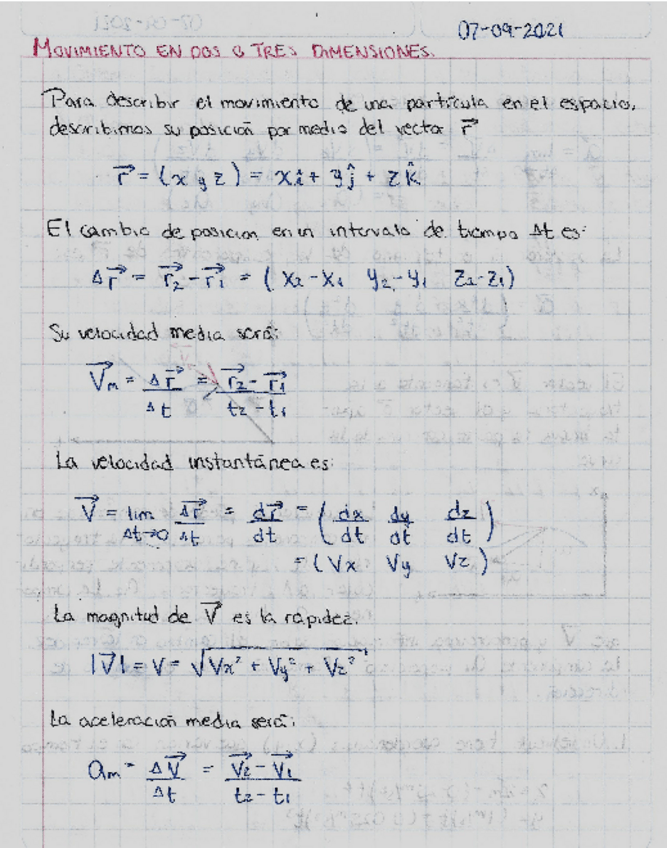 07-09-2021
MOVIMIENTO EN DOS O TRES DIMENSIONES.
Para describir el movimiento de una partícula en el espacio,
describimos su posición por medio del vector r⃗
r⃗ = (x y z) = xî + yĵ + zk̂
El cambio de posicion en un intervalo de tiempo Δt es:
Δr⃗ = r⃗₂ - r⃗₁ = ( x₂-x₁ y₂-y₁ z₂-z₁)
Su velocidad media será:
V⃗m = Δr⃗/Δt = (r⃗₂ - r⃗₁)/(t₂ - t₁)
La velocidad instantánea es:
V⃗ = lim Δt→0 Δr⃗/Δt = dr⃗/dt = (dx/dt dy/dt dz/dt)
= (Vx Vy Vz)
La magnitud de V⃗ es la rapidez.
|V⃗| = V = √(Vx² + Vy² + Vz²)
La aceleración media será:
am = ΔV⃗/Δt = (V⃗₂ - V⃗₁)/(t₂ - t₁)